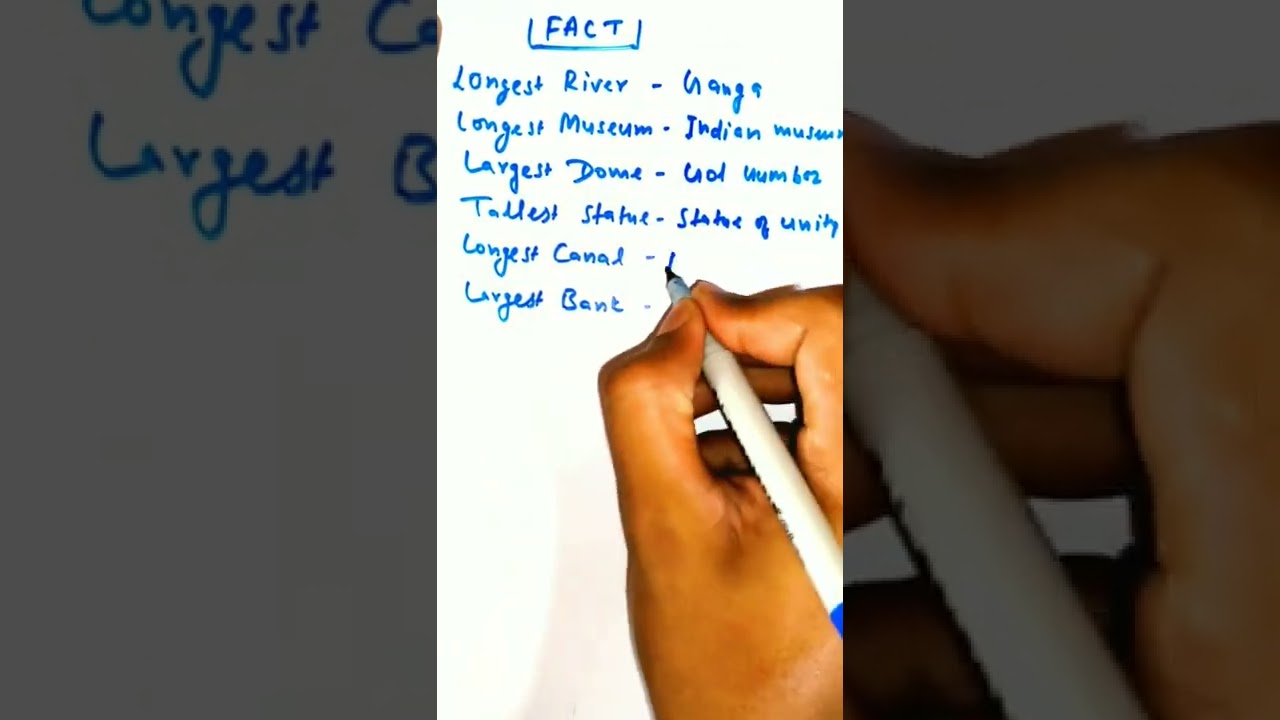 FACT
Longest River - Ganga
Longest Museum - Indian museum
Largest Dome - Gol Gumbaz
Tallest Statue - Statue of unity
Longest Canal -
Largest Bank -